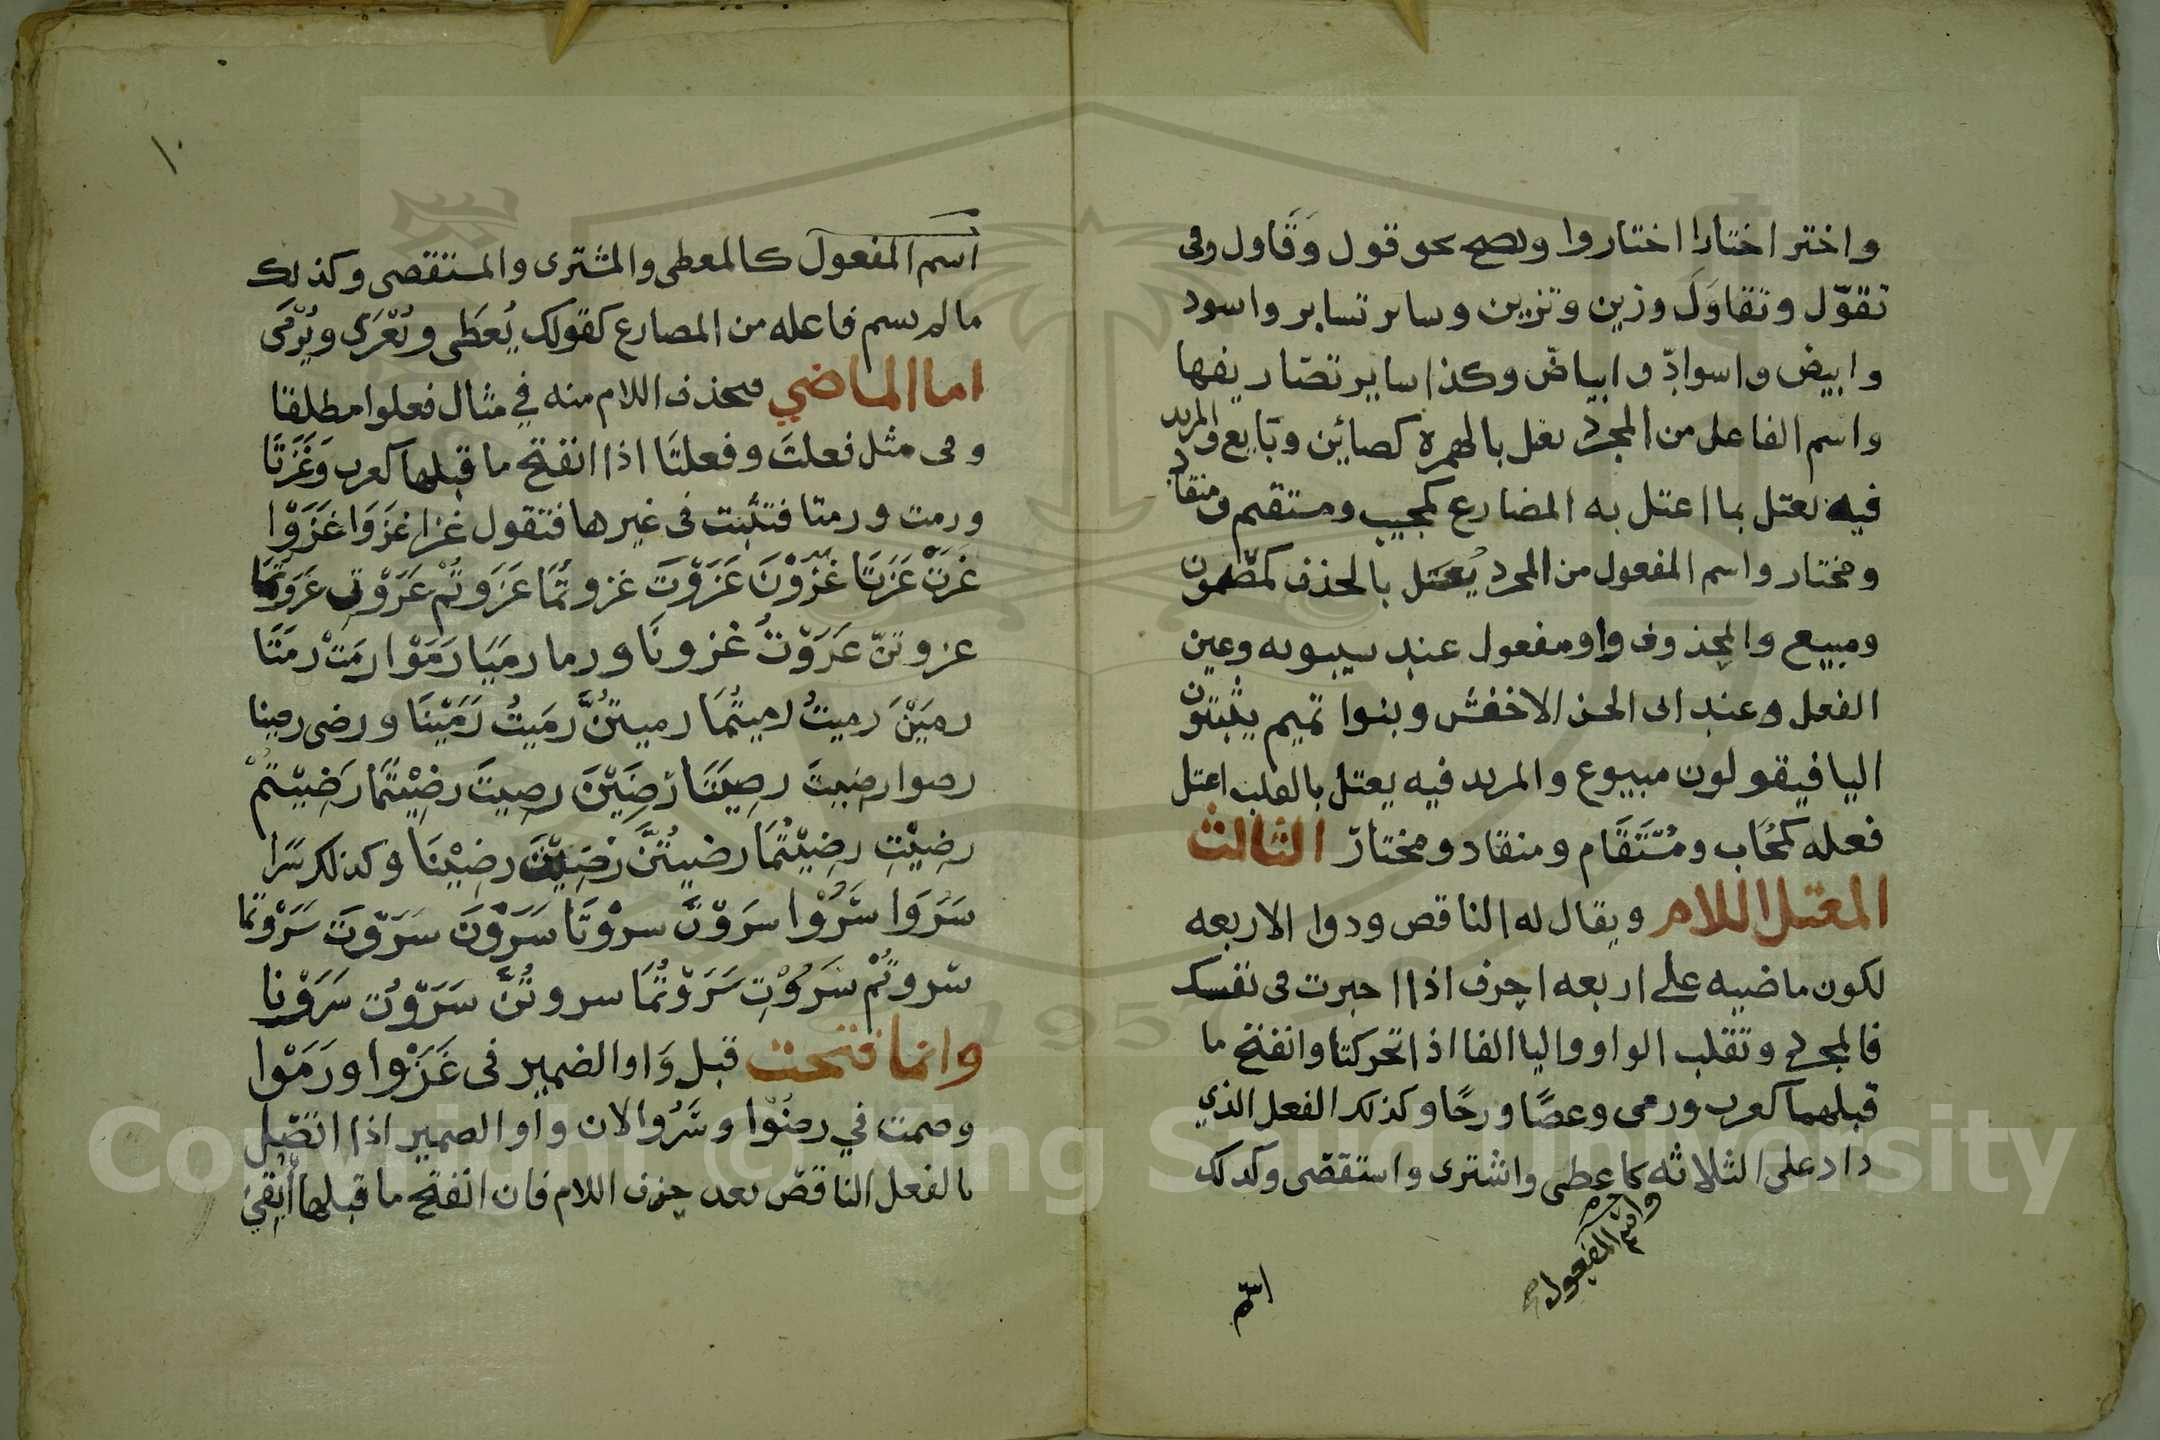 واختر اختارا اختاروا ويصح نحو قول وَقَاول وفى
تقوّل وتقاوَلَ وزين وتزين وساير تساير واسود
وابيض واسوادّ وابياضّ وكذا ساير تصاريفها
واسم الفاعل من المجرد يعتل بالهمزة كصائن وبَايع والمزيد
فيه يعتل بما اعتل به المضارع كمجيب ومستقيم ومنقاد
ومختار واسم المفعول من المجرد يُعتل بالحذف كمصون
ومبيع والمحذوف واو مفعول عند سيبويه وعين
الفعل وعند ابى الحسن الاخفش وبنوا تميم يثبتون
اليا فيقولون مبيوع والمزيد فيه يعتل بالقلب اعتل
فعله كمُجَاب ومُسْتَقَام ومنقاد ومختار الثالث
المعتل اللام ويقال له الناقص وذوا الاربعه
لكون ماضيه على اربعه احرف اذا اخبرت فى نفسك
فالمجرد وتقلب الواو واليا الفا اذا تحركتا وانفتح ما
قبلهما كعزب ورمى وعصًا ورحًا وكذلك الفعل الذي
داد على الثلاثه كاعطى واشترى واستقصى وكذلك
واسم المفعول
اسم
١٠
اسم المفعول كالمعطى والمشترى والمستقصى وكذلك
ما لم يسم فاعله من المضارع كقولك يُعطَى ويُغْزَى ويُرْمَى
اما الماضي فيحذف اللام منه في مثال فعلوا مطلقا
وفى مثل فعلتَ وفعلتَا اذا انفتح ما قبلها كغزت وَغَزَتَا
ورمت ورمتا فتثبت فى غيرها فتقول غزا غَزَوَا غَزَوْا
غَزَتْ غَزَتَا غَزَوْنَ غَزَوْتَ غزوتُمَا غَزَوتُمْ غَزَوْتِ غَزَوتُمَا
غزوتنّ غَزَوْتُ غزونَا ورما رمَيَا رَمَوْا رمَتْ رمَتَا
رمَيْنَ رميتُ رميتُمَا رميتُنَّ رمَيتُ رَمَيْنَا ورضى رضينا
رضوا رضيتَ رضِيَتَا رَضِيْنَ رضِيتَ رضِيْتُمَا رَضِيْتُمْ
رضِيْتِ رضِيْتُمَا رضيتُنَّ رَضِيْتُ رضِيْنَا وكذلك سَرا
سَرُوَا سَرُوْا سَرَوْتَ سروْتَا سَرَوْنَ سَرَوْتَ سَرَوْتما
سَروتُمْ سَرَوْتِ سَرَوْتُمَا سروتُنَّ سَرَوْتُ سَرَوْنا
وانما فتحت قبل وَاو الضمير فى غَزَوْا ورَمَوْا
وضمت في رضُوْا وسَرُوا لان واو الضمير اذا اتصل
بالفعل الناقص بعد حذف اللام فان انفتح ما قبلها اُبْقِيَ